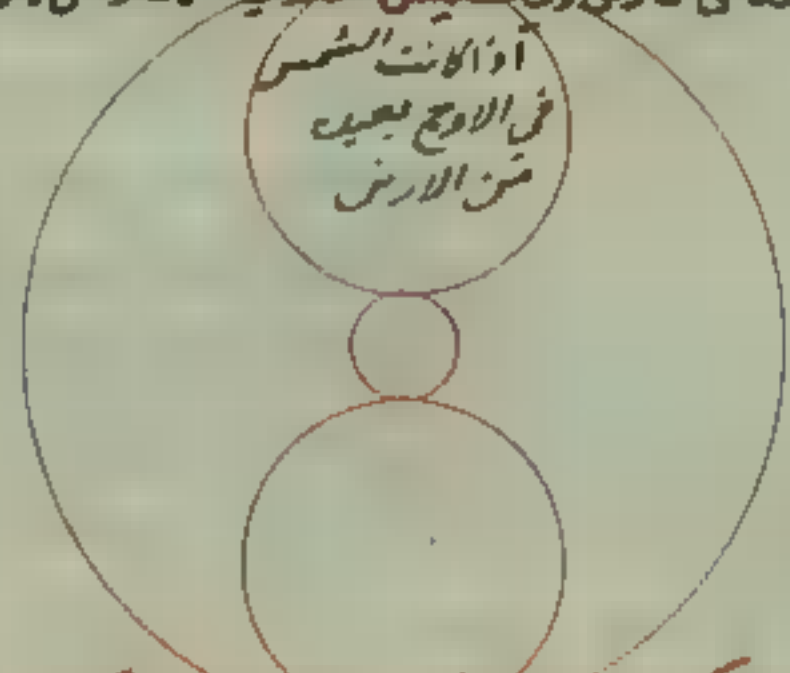 اذا كانت الشمس
فى الاوج بعيد
من الارض